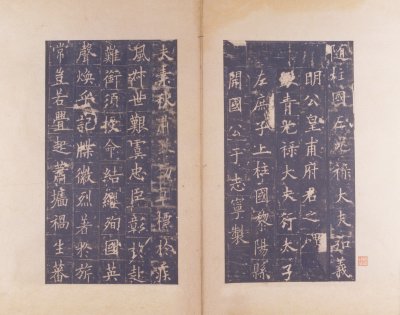 隨柱國左光祿大夫弘義
明公皇甫府君之碑
銀青光祿大夫行太子
左庶子上柱國黎陽縣
開國公于志寧製
夫素秋肅煞勁草標於疾
風叔世艱虞忠臣彰於赴
難銜須授命結纓殉國英
聲煥乎記牒徽烈著於旂
常豈若舋起蕭墻禍生蕃